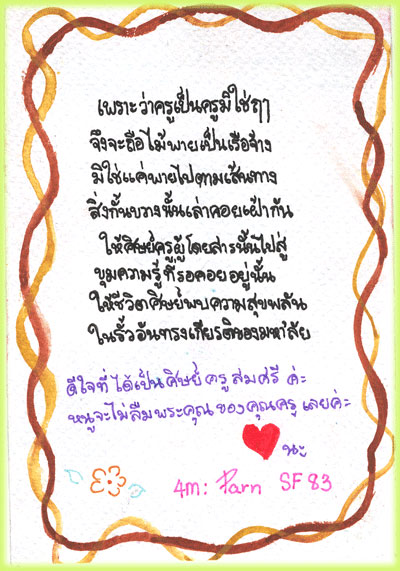 เพราะว่าครูเป็นครูมิใช่ฤา
จึงจะถือไม้พายเป็นเรือจ้าง
มิใช่แค่พายไปตามเส้นทาง
สิ่งกั้นขวางนั้นเล่าคอยเฝ้ากัน
ให้ศิษย์ครูผู้โดยสารนั้นไปสู่
ขุมความรู้ที่รอคอยอยู่นั้น
ให้ชีวิตศิษย์พบความสุขพลัน
ในรั้วอันทรงเกียรติของมหา'ลัย
ดีใจที่ได้เป็นศิษย์ครูสมศรี ค่ะ
หนูจะไม่ลืมพระคุณของคุณครูเลยค่ะ
นะ
4m: Parn SF 83